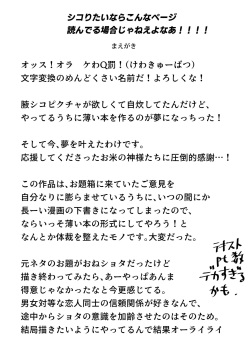 シコりたいならこんなページ
読んでる場合じゃねえよなあ！！！！
まえがき
オッス！オラ　ケわQ罰！（けわきゅーばつ）
文字変換のめんどくさい名前だ！よろしくな！
腋シコピクチャが欲しくて自炊してたんだけど、
やってるうちに薄い本を作るのが夢になっちった！
そして今、夢を叶えたわけです。
応援してくださったお米の神様たちに圧倒的感謝…！
この作品は、お題箱に来ていたご意見を
自分なりに膨らませているうちに、いつの間にか
長ーい漫画の下書きになってしまったので、
ならいっそ薄い本の形式にしてやろう！と
なんとか体裁を整えたモノです。大変だった。
元ネタのお題がおねショタだったけど
描き終わってみたら、あーやっぱあんま
得意じゃなかったなと今更感じてる。
男女対等な恋人同士の信頼関係が好きなんで、
途中からショタの意識を加齢させたはそのため。
結局描きたいようにやってるんで結果オーライライ
テキスト
pt数
デカすぎる
かも．